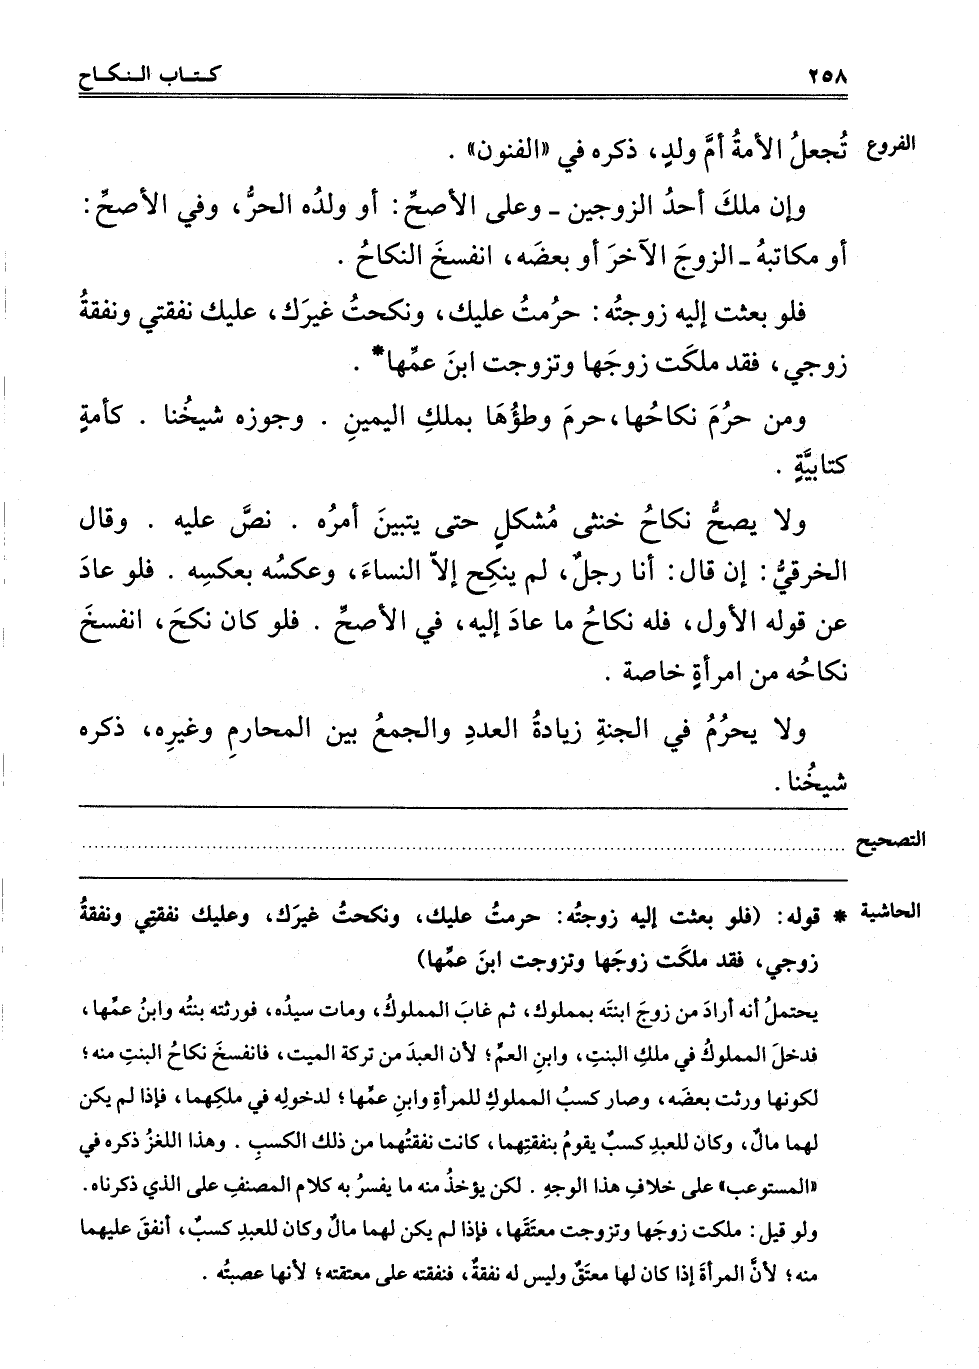 ٢٥٨ كتاب النكاح
الفروع تُجعلُ الأمةُ أمَّ ولدٍ، ذكره في «الفنون» .
وإن ملكَ أحدُ الزوجين ـ وعلى الأصحِّ: أو ولدُه الحرُّ، وفي الأصحِّ:
أو مكاتبهُ ـ الزوجَ الآخرَ أو بعضَه، انفسخَ النكاحُ .
فلو بعثت إليه زوجتُه: حرُمتُ عليك، ونكحتُ غيرَك، عليك نفقتي ونفقةُ
زوجي، فقد ملكَت زوجَها وتزوجت ابنَ عمِّها* .
ومن حرُمَ نكاحُها، حرمَ وطؤُهَا بملكِ اليمينِ . وجوزه شيخُنا . كأمةٍ
كتابيَّةٍ .
ولا يصحُّ نكاحُ خنثى مُشكلٍ حتى يتبينَ أمرُه . نصَّ عليه . وقال
الخرقيُّ: إن قال: أنا رجلٌ، لم ينكِح إلاّ النساءَ، وعكسُه بعكسِه . فلو عادَ
عن قوله الأول، فله نكاحُ ما عادَ إليه، في الأصحِّ . فلو كان نكحَ، انفسخَ
نكاحُه من امرأةٍ خاصة .
ولا يحرُمُ في الجنةِ زيادةُ العددِ والجمعُ بين المحارمِ وغيرِه، ذكره
شيخُنا .
التصحيح ................................................................
الحاشية * قوله: (فلو بعثت إليه زوجتُه: حرمتُ عليك، ونكحتُ غيرَك، وعليك نفقتِي ونفقةُ
زوجي، فقد ملكَت زوجَها وتزوجت ابنَ عمِّها)
يحتملُ أنه أرادَ من زوجَ ابنتَه بمملوك، ثم غابَ المملوكُ، ومات سيدُه، فورثته بنتُه وابنُ عمِّها،
فدخلَ المملوكُ في ملكِ البنتِ، وابنِ العمِّ؛ لأن العبدَ من تركة الميت، فانفسخَ نكاحُ البنتِ منه؛
لكونها ورثت بعضَه، وصار كسبُ المملوكِ للمرأةِ وابنِ عمِّها؛ لدخولِه في ملكِهما، فإذا لم يكن
لهما مالٌ، وكان للعبدِ كسبٌ يقومُ بنفقتِهما، كانت نفقتُهما من ذلك الكسبِ . وهذا اللغزُ ذكره في
«المستوعب» على خلافِ هذا الوجهِ . لكن يؤخذُ منه ما يفسرُ به كلام المصنفِ على الذي ذكرناه.
ولو قيل: ملكت زوجَها وتزوجت معتَقَها، فإذا لم يكن لهما مالٌ وكان للعبدِ كسبٌ، أنفقَ عليهما
منه؛ لأنَّ المرأةَ إذا كان لها معتَقٌ وليس له نفقةٌ، فنفقته على معتقته؛ لأنها عصبتُه .